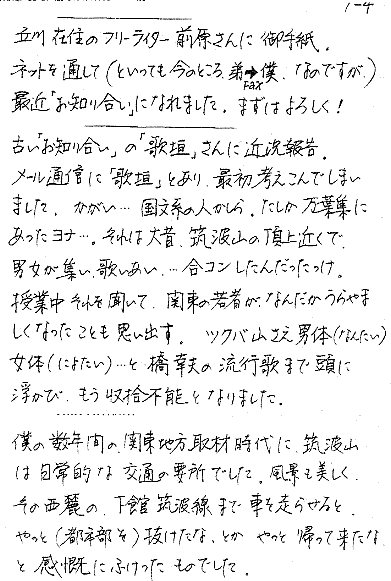 1-4
立川在住のフリーライター前原さんに御手紙。
ネットを通して(といっても今のところ、弟➡僕、なのですが。)
FAX
最近「お知り合い」になれました。まずはよろしく!
古い「お知り合い」の「歌垣」さんに近況報告。
メール通信に「歌垣」とあり、最初考えこんでしまい
ました。かがい…国文系の人かしら。たしか万葉集に
あったヨナ…。それは大昔、筑波山の頂上近くで、
男女が集い、歌いあい、…合コンしたんだったっけ。
授業中それを聞いて、関東の若者が、なんだかうらやま
しくなったことも思い出す。ツクバ山さえ男体(なんたい)
女体(によたい)…と橋幸夫の流行歌まで頭に
浮かび、もう収拾不能となりました。
僕の数年間の、関東地方取材時代に、筑波山
は日常的な交通の要所でした。風景も美しく、
その西麓の、下館筑波線まで車を走らせると、
やっと(都市部を)抜けたな、とか やっと帰って来たな
と感慨にふけったものでした。